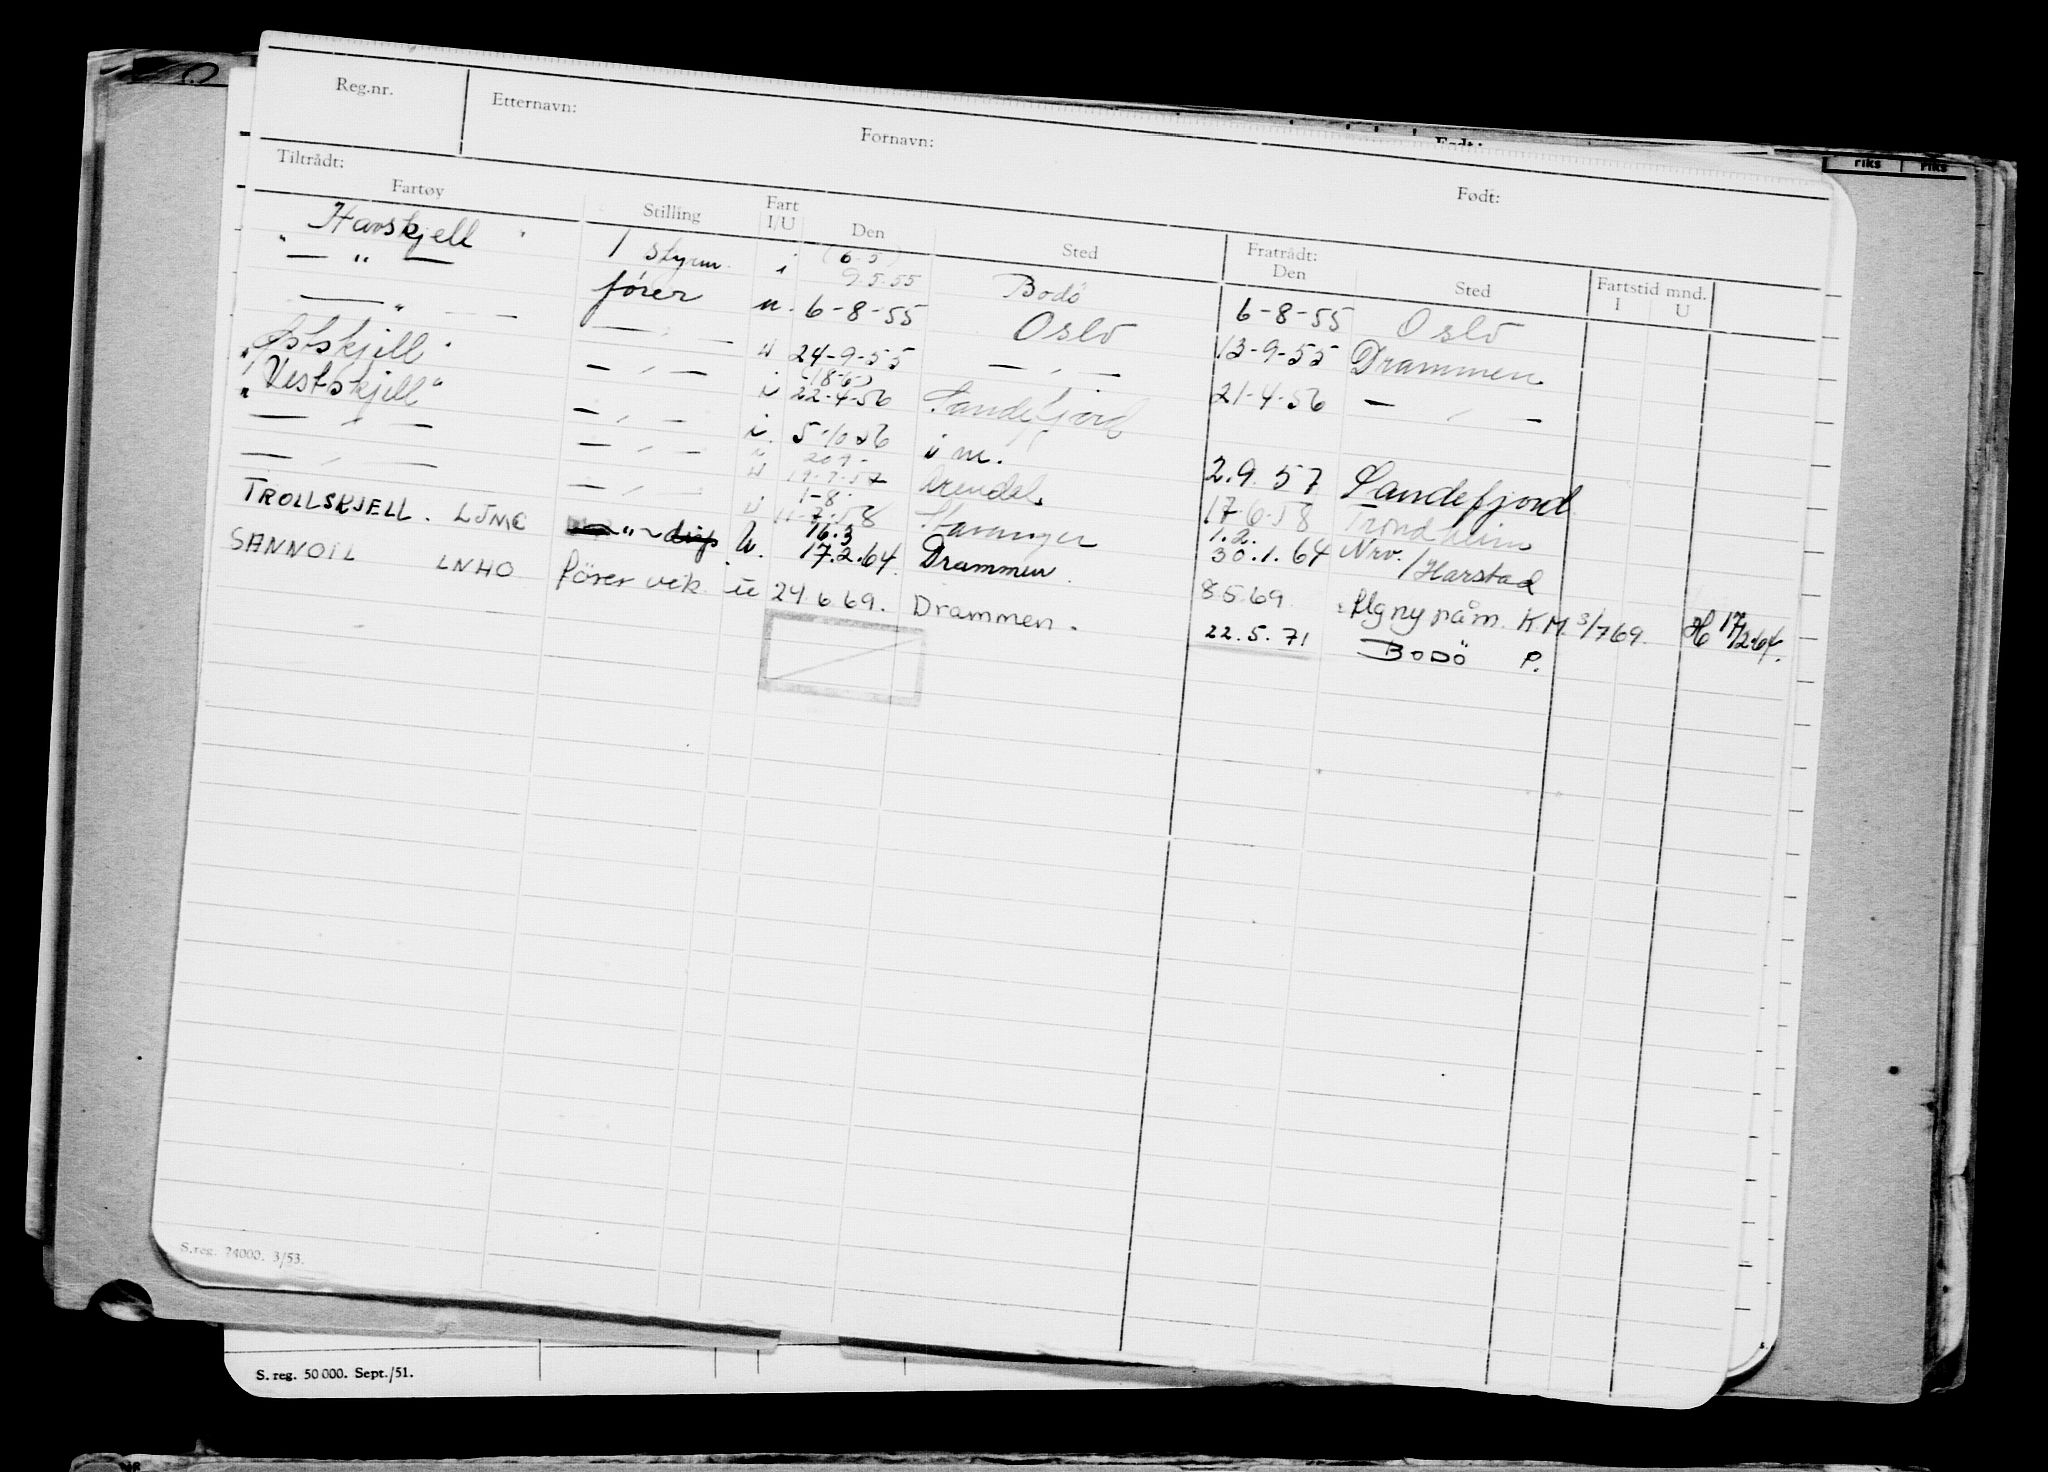 Reg.nr. Etternavn: Fornavn: Født:
Tiltrådt: Fratrådt:
Fartøy Stilling Fart I/U Den Sted Den Sted Fartstid mnd. I U
" Havskjell " 1 styrm. i (6.5) 9.5.55 Bodö 6-8-55 Oslo
— " — fører u. 6-8-55 Oslo 13-9-55 Drammen
— " — — " — u 24-9-55 — " — 21-4-56 — " —
" Østskjell " — " — u (18-6) 22-4-56 Sandefjord
" Vestskjell " — " — i. 5.10.56 i m. 2.9.57 Sandefjord
— " — — " — u 20.9. 19.9.57 Arendal 17.6.58 Trondheim
— " — — " — u 1-8. 11-7-58 Stavanger 1.2. 30.1.64 Nrv./Harstad
TROLLSKJELL. LJMC " U. 16.3 17.2.64. Drammen. 8.5.69 flg ny påm. K.M. 3/7 69. H 17/2.64.
SANNOIL LNHO förer vek. u 24 6 69. Drammen. 22.5.71 BODÖ P.
S.reg. 74000. 3/53.
S. reg. 50 000. Sept./51.
Født:
riks riks